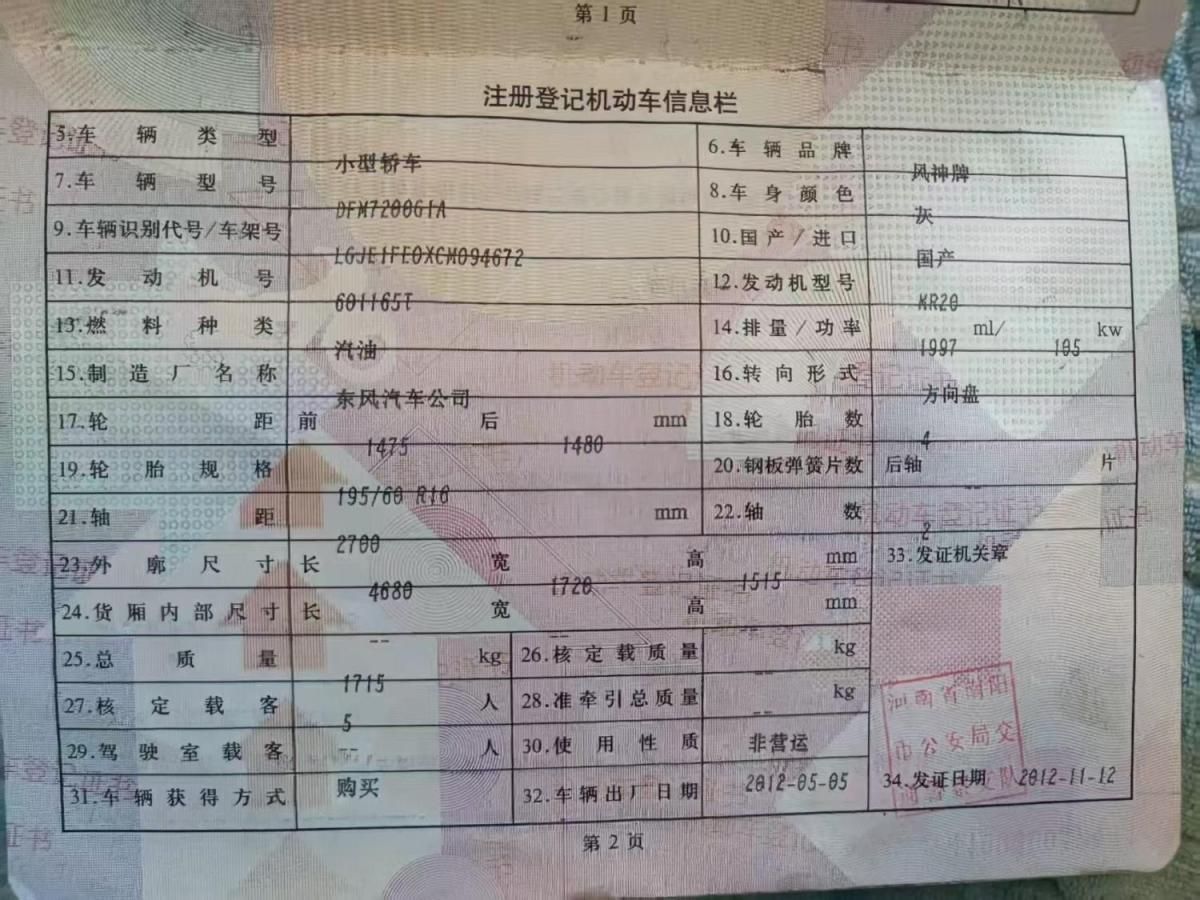 第1页
注册登记机动车信息栏
5.车辆类型 小型轿车 6.车辆品牌 风神牌
7.车辆型号 DFM7200G1A 8.车身颜色 灰
9.车辆识别代号/车架号 LGJE1FE0XCM094672 10.国产/进口 国产
11.发动机号 601165T 12.发动机型号 MR20
13.燃料种类 汽油 14.排量/功率 1997 ml/ 105 kw
15.制造厂名称 东风汽车公司 16.转向形式 方向盘
17.轮距 前 1475 后 1480 mm 18.轮胎数 4
19.轮胎规格 195/60 R16 20.钢板弹簧片数 后轴 -- 片
21.轴距 2700 mm 22.轴数 2
23.外廓尺寸 长 4680 宽 1720 高 1515 mm 33.发证机关章
24.货厢内部尺寸 长 -- 宽 -- 高 -- mm
25.总质量 1715 kg 26.核定载质量 -- kg
27.核定载客 5 人 28.准牵引总质量 -- kg
29.驾驶室载客 -- 人 30.使用性质 非营运
31.车辆获得方式 购买 32.车辆出厂日期 2012-05-05 34.发证日期 2012-11-12
河南省南阳
市公安局交
第2页